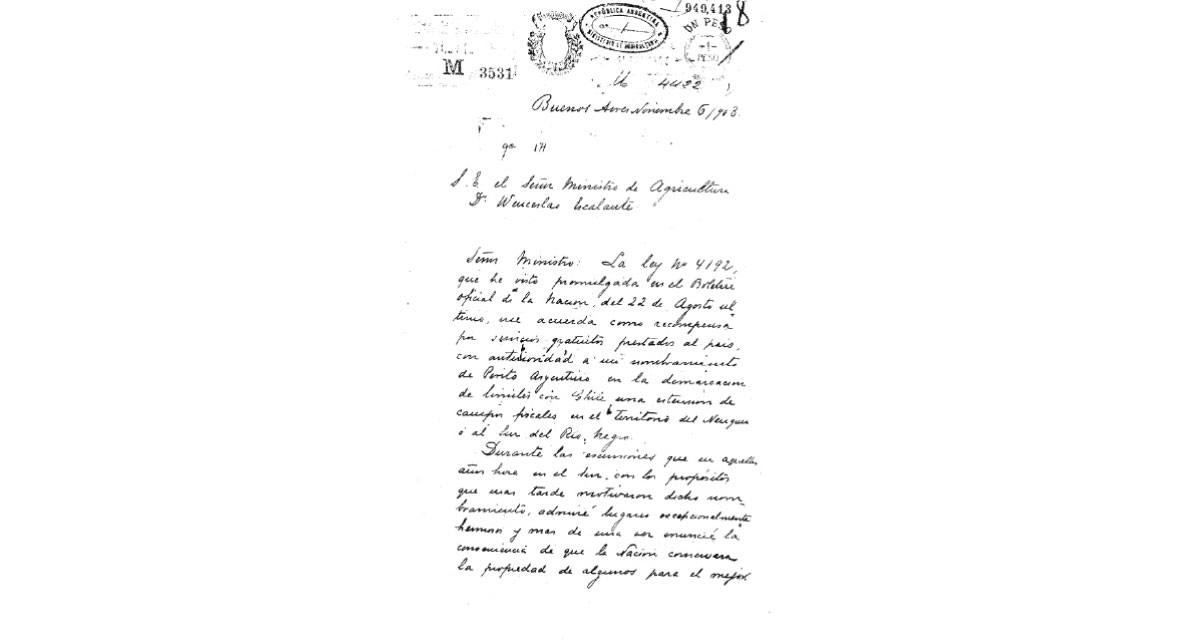 949,413 18
REPÚBLICA ARGENTINA
MINISTERIO DE AGRICULTURA
UN PESO
-1-
PESO
M 3531
M 4422
Buenos Aires Noviembre 6/903.
S. E. el Señor Ministro de Agricultura
Dr. Wenceslao Escalante.
Señor Ministro: La ley Nº 4192,
que he visto promulgada en el Boletin
oficial de la Nacion, del 22 de Agosto ul
timo, me acuerda como recompensa
por servicios gratuitos prestados al pais,
con anterioridad a mi nombramiento
de Perito Argentino en la demarcacion
de limites con Chile una estension de
campos fiscales en el territorio del Neuquen
ó al Sur del Rio Negro.
Durante las escursiones que en aquellos
años hice en el Sur, con los propósitos
que mas tarde motivaron dicho nom-
bramiento, admiré lugares excepcionalmente
hermosos y mas de una vez enuncié la
conveniencia de que la Nacion conservara
la propiedad de algunos para el mejor